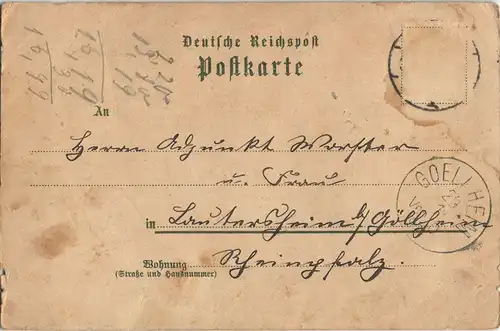 Deutsche Reichspost
Postkarte
An
Herrn Adjunkt Worster
u. Frau
in Lautersheim b/Göllheim
Wohnung Rheinpfalz.
(Straße und Hausnummer)
GOELLHEIM